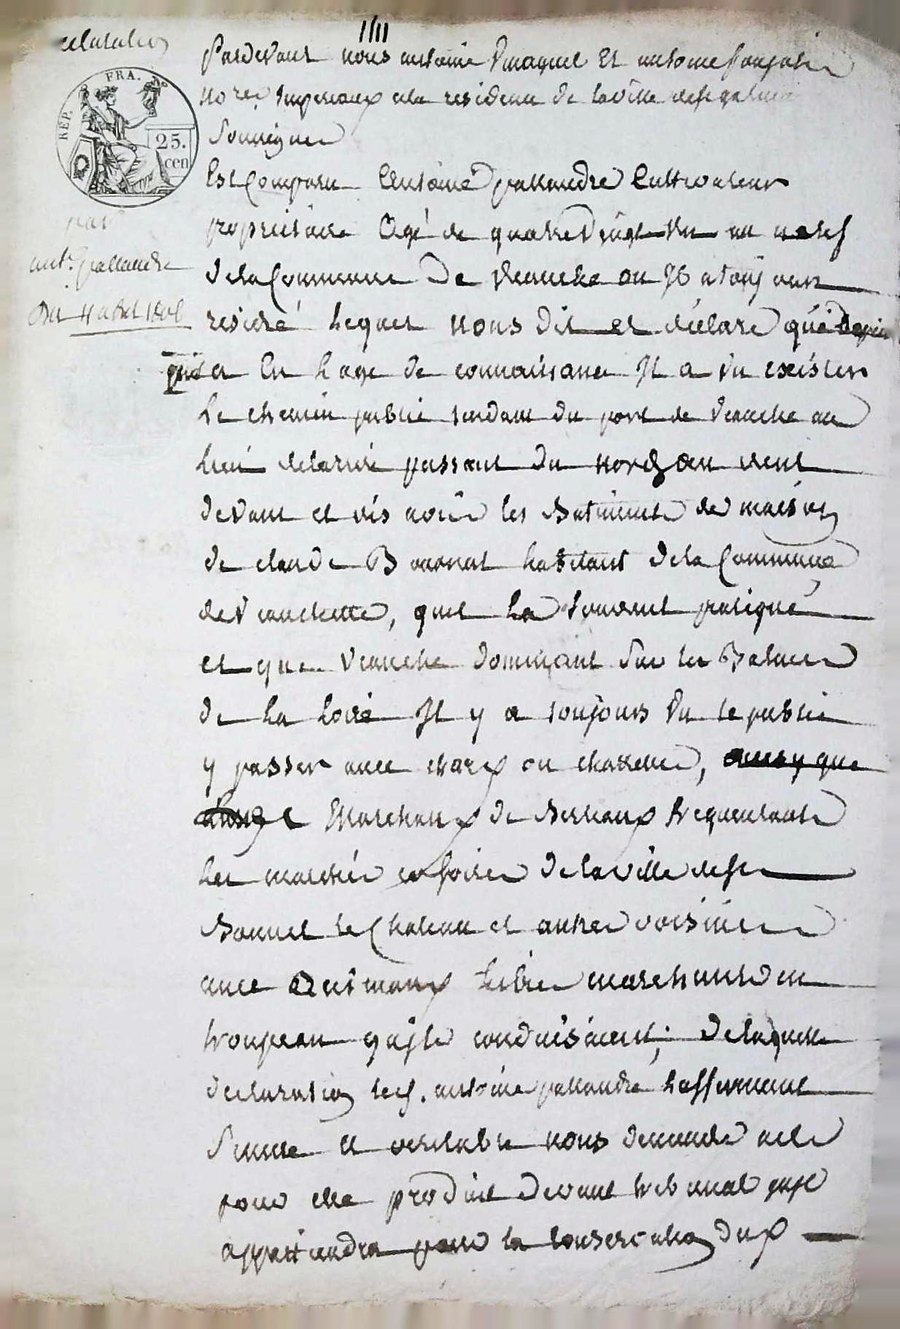 declaration
RÉP. FRA.
25.
cen
par
ant.e pallandre
Du 11 abril
Pardevant nous antoine et antoine
No.res Imperiaux de la residence de la ville de st galmier
Soussignes
Est Comparu Antoine pallandre Cultivateur
proprietaire Agé de quatre Vingt un neuf
de la Commune De Veauche ou Il a toujours
residé Lequel nous dit et déclare que depuis
qu'il a eu L'age de connaissance Il a vu exister
Le chemin public tendant du port de Veauche au
lieu passant du nord au vent
devant et vis avis les Batiments de maison
de claude habitant de la Commune
de Veauchette, quil La souvent pratiqué
et que Veauche dominant Sur les
de La Loire Il y a toujours vu le public
y passer avec chars ou charettes,
Marchaux de Bestiaux frequentants
Les marchés ou foires de la ville de st
Bonnet le Chateau et autres voisines
avec Animaux Libres marchants en
troupeau quils conduisaient; de laquelle
declaration led. antoine pallandre L'affirmant
Sincere et veritable nous demande acte
pour etre produit devant tribunal quil
appartiendra pour la conservation du